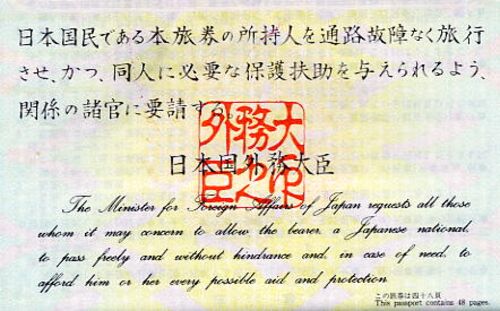 日本国民である本旅券の所持人を通路故障なく旅行
させ、かつ、同人に必要な保護扶助を与えられるよう、
関係の諸官に要請する。
日本国外務大臣
外務大臣之印
The Minister for Foreign Affairs of Japan requests all those
whom it may concern to allow the bearer, a Japanese national,
to pass freely and without hindrance and, in case of need, to
afford him or her every possible aid and protection.
この旅券は四十八頁
This passport contains 48 pages.